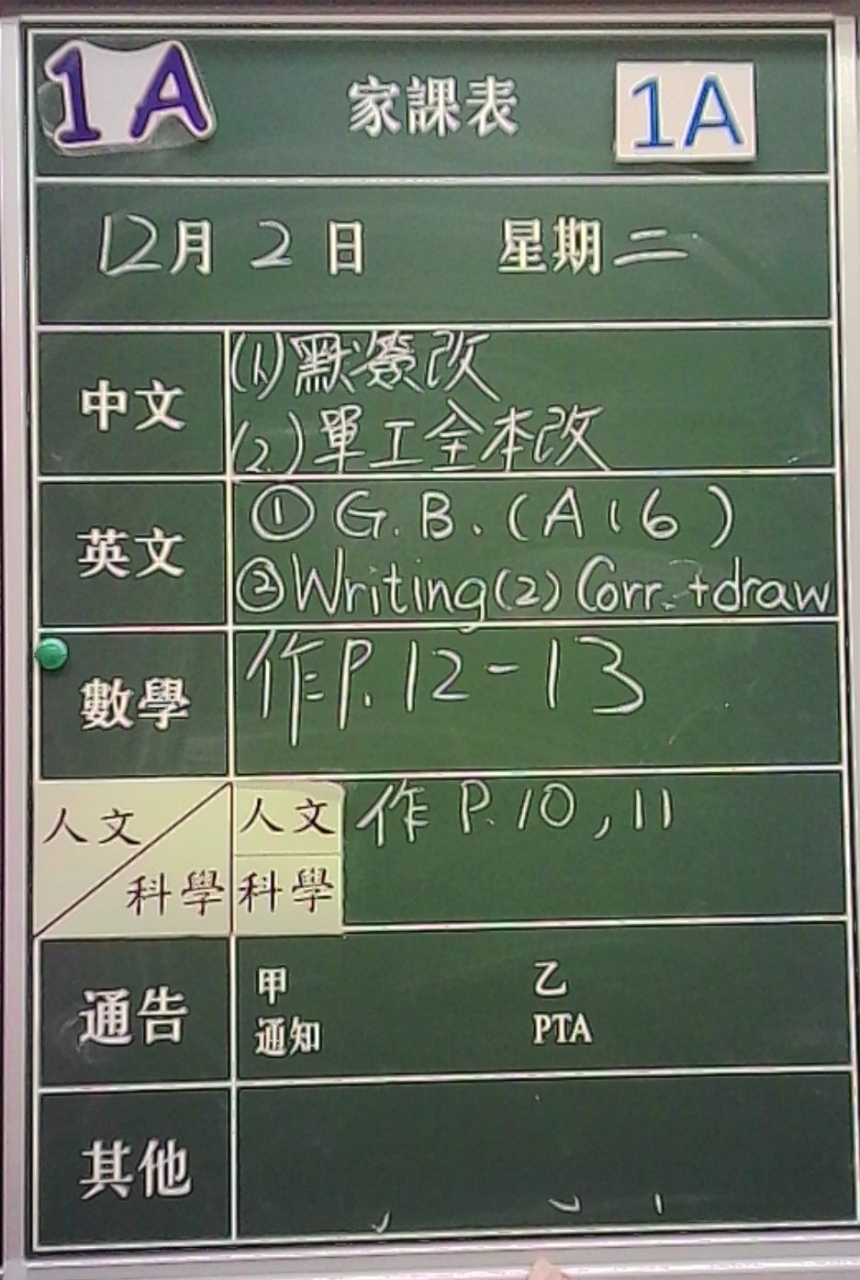 1A 家課表 1A
12月 2 日 星期二
中文
(1.)默簽改
(2.)單工全本改
英文
① G.B.(A16)
②Writing(2) Corr.+draw
數學
作P.12-13
人文
科學
人文 作 P.10,11
科學
通告
甲 乙
通知 PTA
其他